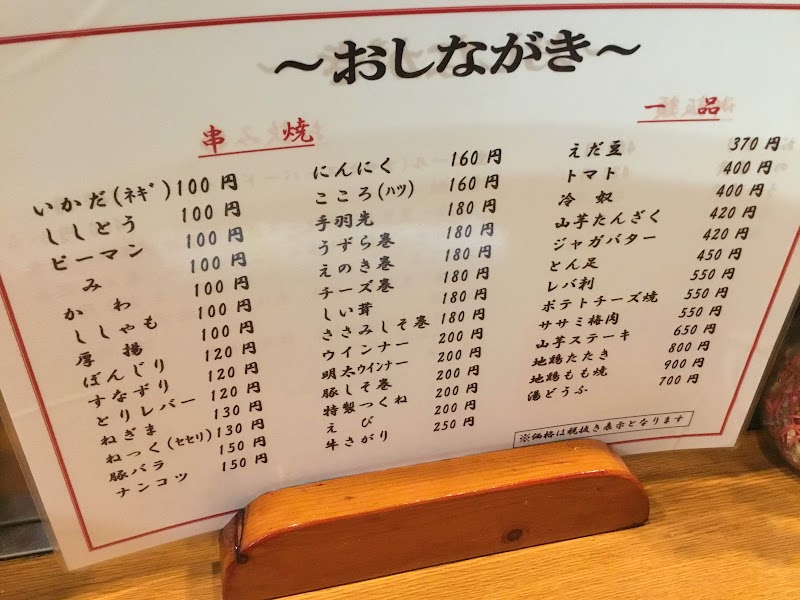 ～おしながき～
串 焼
いかだ(ネギ) 100 円
ししとう 100 円
ピーマン 100 円
み 100 円
か わ 100 円
ししゃも 100 円
厚 揚 100 円
ぼんじり 120 円
すなずり 120 円
とりレバー 120 円
ねぎま 130 円
ねっく(セセリ) 130 円
豚バラ 150 円
ナンコツ 150 円
にんにく 160 円
こころ(ハツ) 160 円
手羽先 180 円
うずら巻 180 円
えのき巻 180 円
チーズ巻 180 円
しい茸 180 円
ささみしそ巻 180 円
ウインナー 200 円
明太ウインナー 200 円
豚しそ巻 200 円
特製つくね 200 円
え び 200 円
牛さがり 250 円
一 品
えだ豆 370 円
トマト 400 円
冷 奴 400 円
山芋たんざく 420 円
ジャガバター 420 円
とん足 450 円
レバ刺 550 円
ポテトチーズ焼 550 円
ササミ梅肉 550 円
山芋ステーキ 650 円
地鶏たたき 800 円
地鶏もも焼 900 円
湯どうふ 700 円
※価格は税抜き表示となります